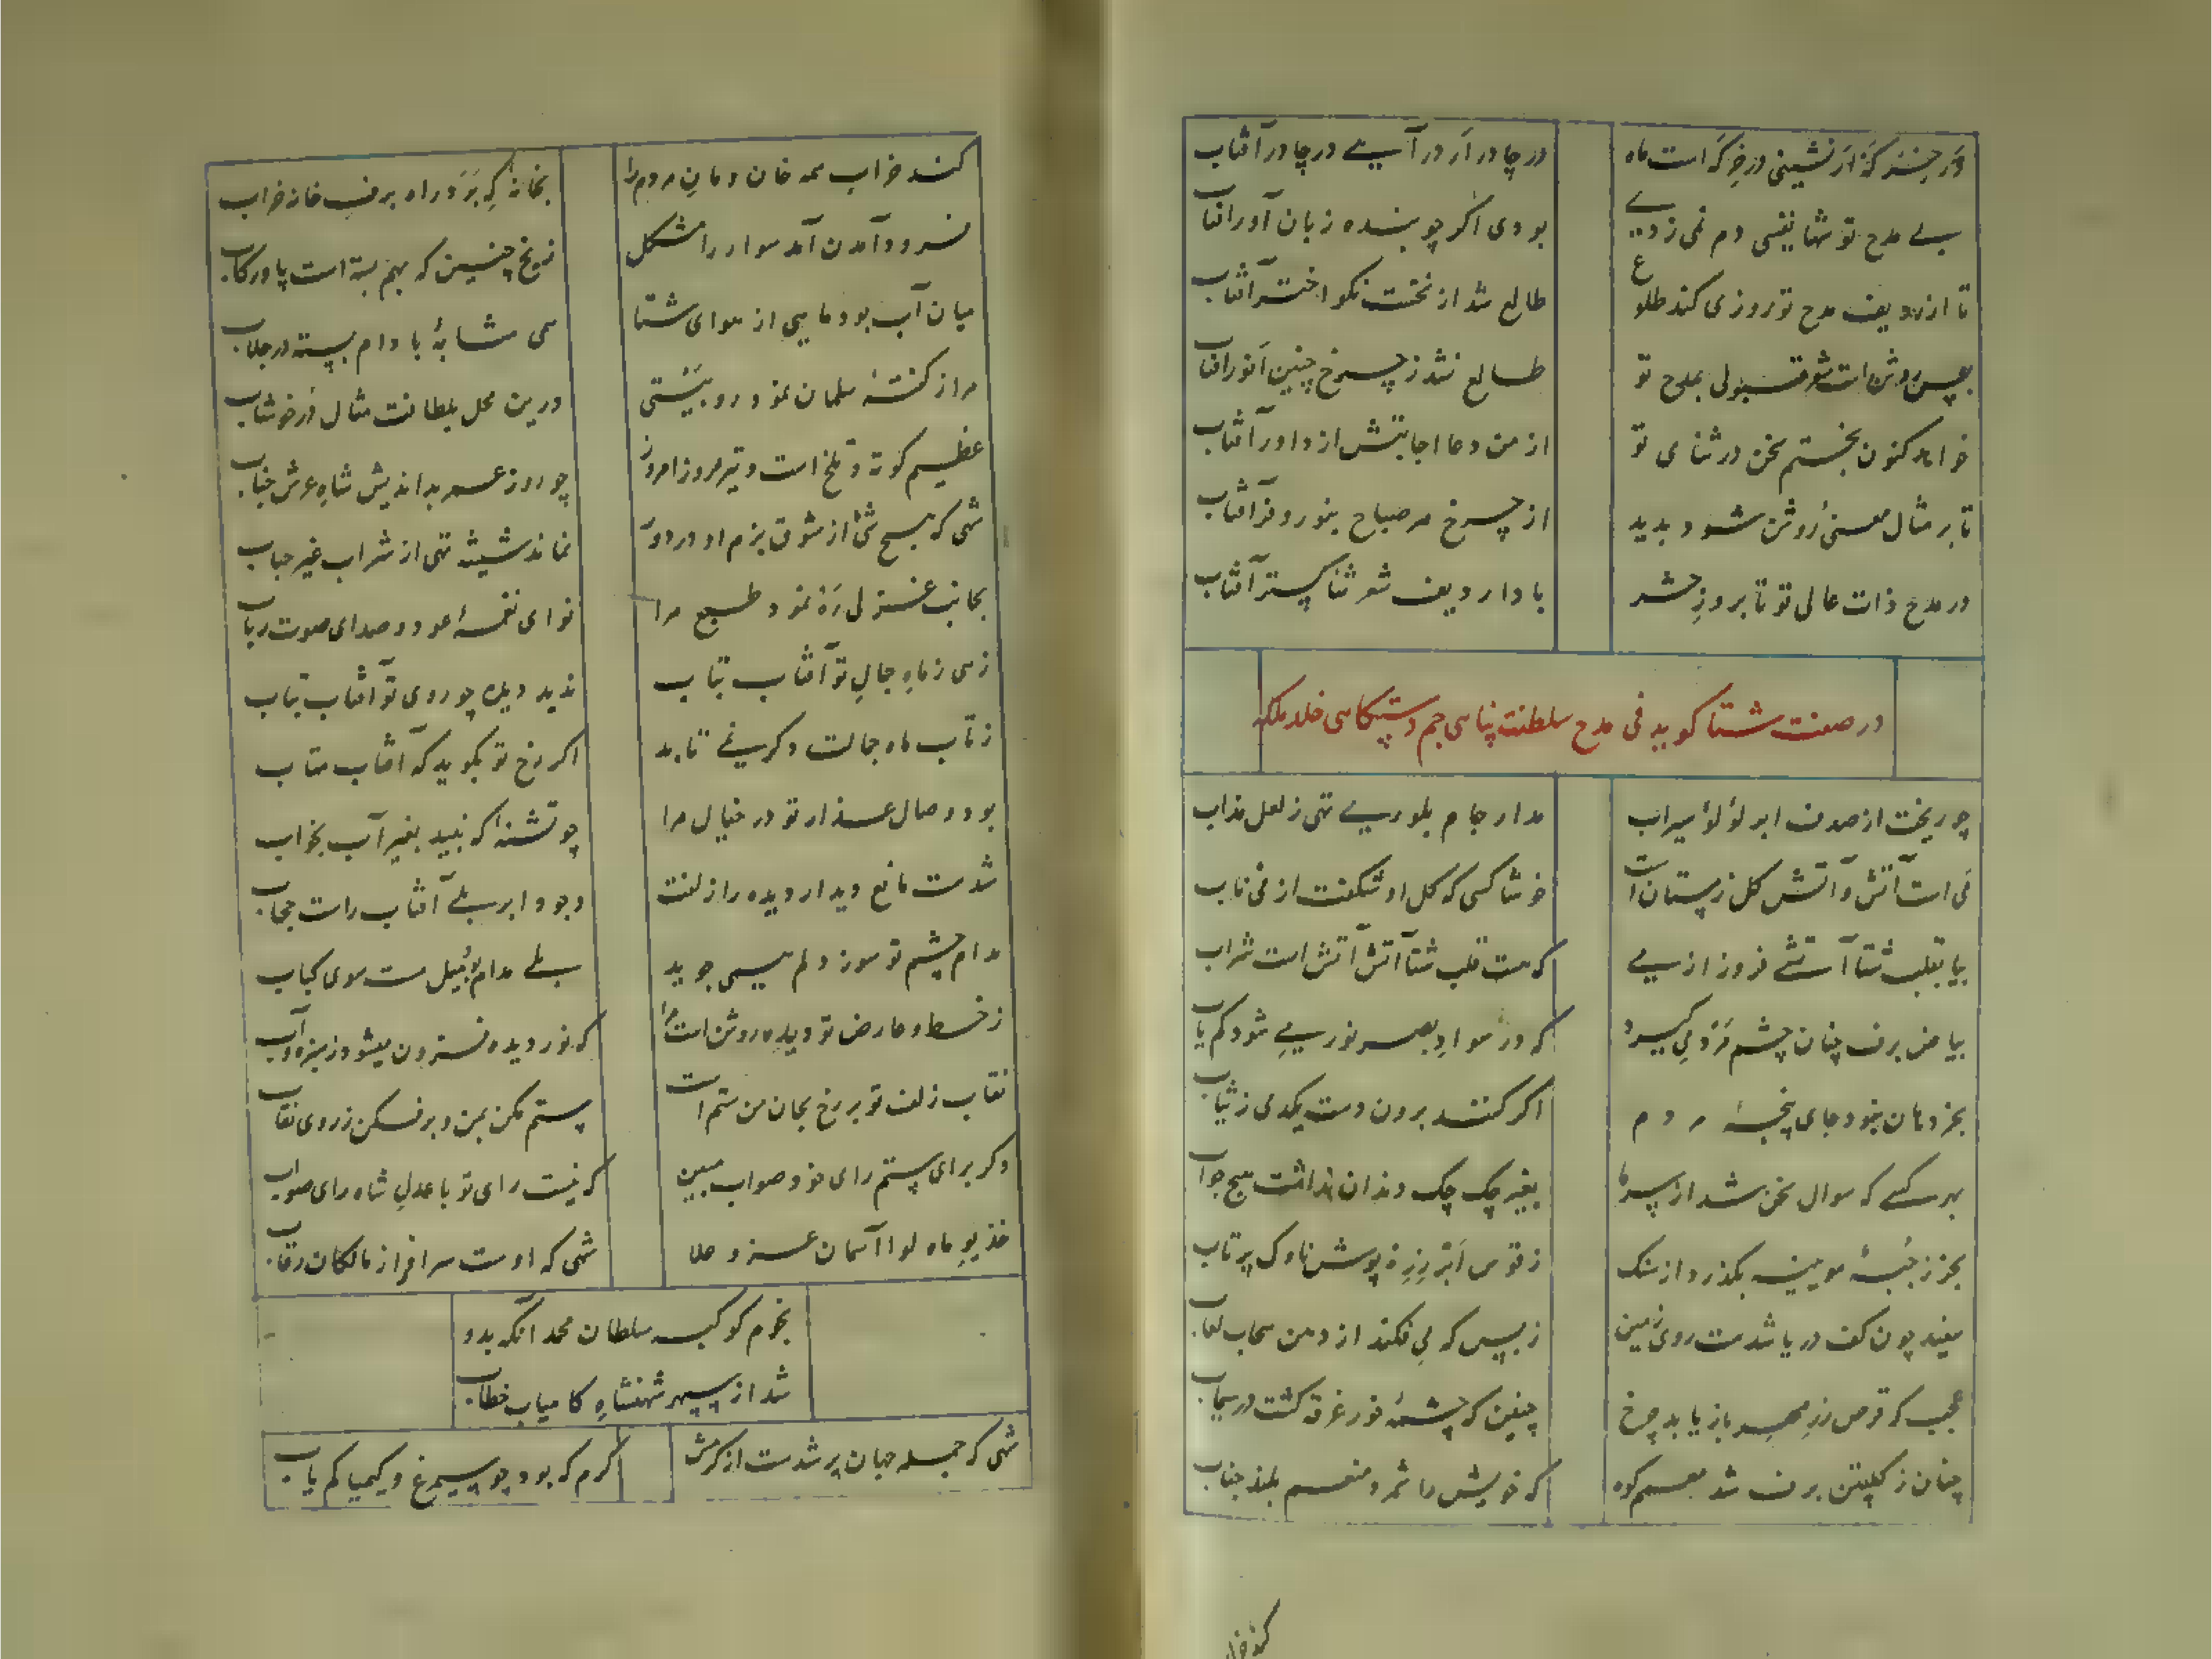 ور خرگه ار نشینی در خرگه است ماه در چادر ار در آیی در چادر آفتاب
بی مدح تو شها نفسی دم نمی زدی بودی اگر چو بنده زبان آور آفتاب
تا از ردیف مدح تو روزی کند طلوع طالع شد از نخست نکو اختر آفتاب
روشن است شعر قبولی بمدح تو طالع نشد ز چرخ چنین انور آفتاب
خواهد کنون بختم سخن در ثنای تو از من دعا اجابتش از داور آفتاب
تا بر مثال معنئ روشن شود پدید از چرخ هر صباح بنور و فر آفتاب
در مدح ذات عالی تو تا بروز حشر بادا ردیف شعر ثنا گستر آفتاب
در صفت شتا گوید فی مدح سلطنت پناهی جم دستگاهی خلد ملکه
چو ریخت از صدف ابر لؤلؤ سیراب مدار جام بلوریی تهی ز لعل مذاب
می است آتش و آتش گل زمستان است خوشا کسی که گل او شگفت از می ناب
بیا بقلب شتا آتشی فروز از می که هست قلب شتا آتش آتش است شراب
بیاض برف چنان چشم مرد می گیرد که در سواد بصر نوریی شود کم یاب
بجز دهان نبود جای پنجهٔ مردم اگر کنند برون دست یکدمی ز ثیاب
بهر کسی که سوال سخن شد از سرما بغیر چک چک دندان نداشت هیچ جواب
بجز ز جبهٔ مویینه بگذرد از سنگ ز قوس ابر زره پوش ناوک پرتاب
سفید چون کف دریا شدست روی زمین ز بس که می فکند از دهن سحاب لعاب
عجب که قرص زر مهر باز یابد چرخ چنین که چشمهٔ خور غرقه گشت در سیماب
چنان ز برف شد معمم کوه که خویش را شمرد منعم بلند جناب
کند خراب همه خان و مان مردم را بخانهٔ که برد راه برف خانه خراب
فرود آمدن آمد سوار را مشکل ز یخ چنین که بهم بسته است پا و رکاب
میان آب بود ماهیی از هوای شتا همی مشابهٔ بادام بسته در جلاب
مرا ز گفتهٔ سلمان نمود رو بیتی درین محل بلطافت مثال در خوشاب
عظیم کوته و تلخ است و تیره روز امروز چو روز عمر بداندیش شاه عرش جناب
شهی که هیچ شی از شوق بزم او در دور نماند شیشه تهی از شراب غیر حباب
بجانب غزلی ره نمود طبع مرا نوای نغمهٔ عود و صدای صوت رباب
زهی ز ماه جمال تو آفتاب بتاب ندید دیده چو روی تو آفتاب بتاب
ز تاب ماه جمالت دگر نمی تابد اگر رخ تو بگوید که آفتاب متاب
بود وصال عذار تو در خیال مرا چو تشنهٔ که نبیند بغیر آب بخواب
شدست مانع دیدار دیده را زلفت وجود ابر بلی آفتاب راست حجاب
مدام چشم تو سوز دلم همی جوید بلی مدام بود میل مست سوی کباب
ز خط و عارض تو دیده روشن است مرا که نور دیده فزون میشود ز سبزه و آب
نقاب زلف تو بر رخ بجان من ستم است ستم مکن بمن و برفکن ز روی نقاب
دگر برای ستم رای خود صواب مبین که نیست رای تو با عدل شاه رای صواب
خدیو ماه لوا آسمان عز و علا شهی که اوست سرافراز مالکان رقاب
نجوم کوکبه سلطان محمد آنکه بدو
شد از سپهر شهنشاه کامیاب خطاب
شهی که جمله جهان پر شدست از کرمش کرم که بود چو سیمرغ و کیمیا کم یاب